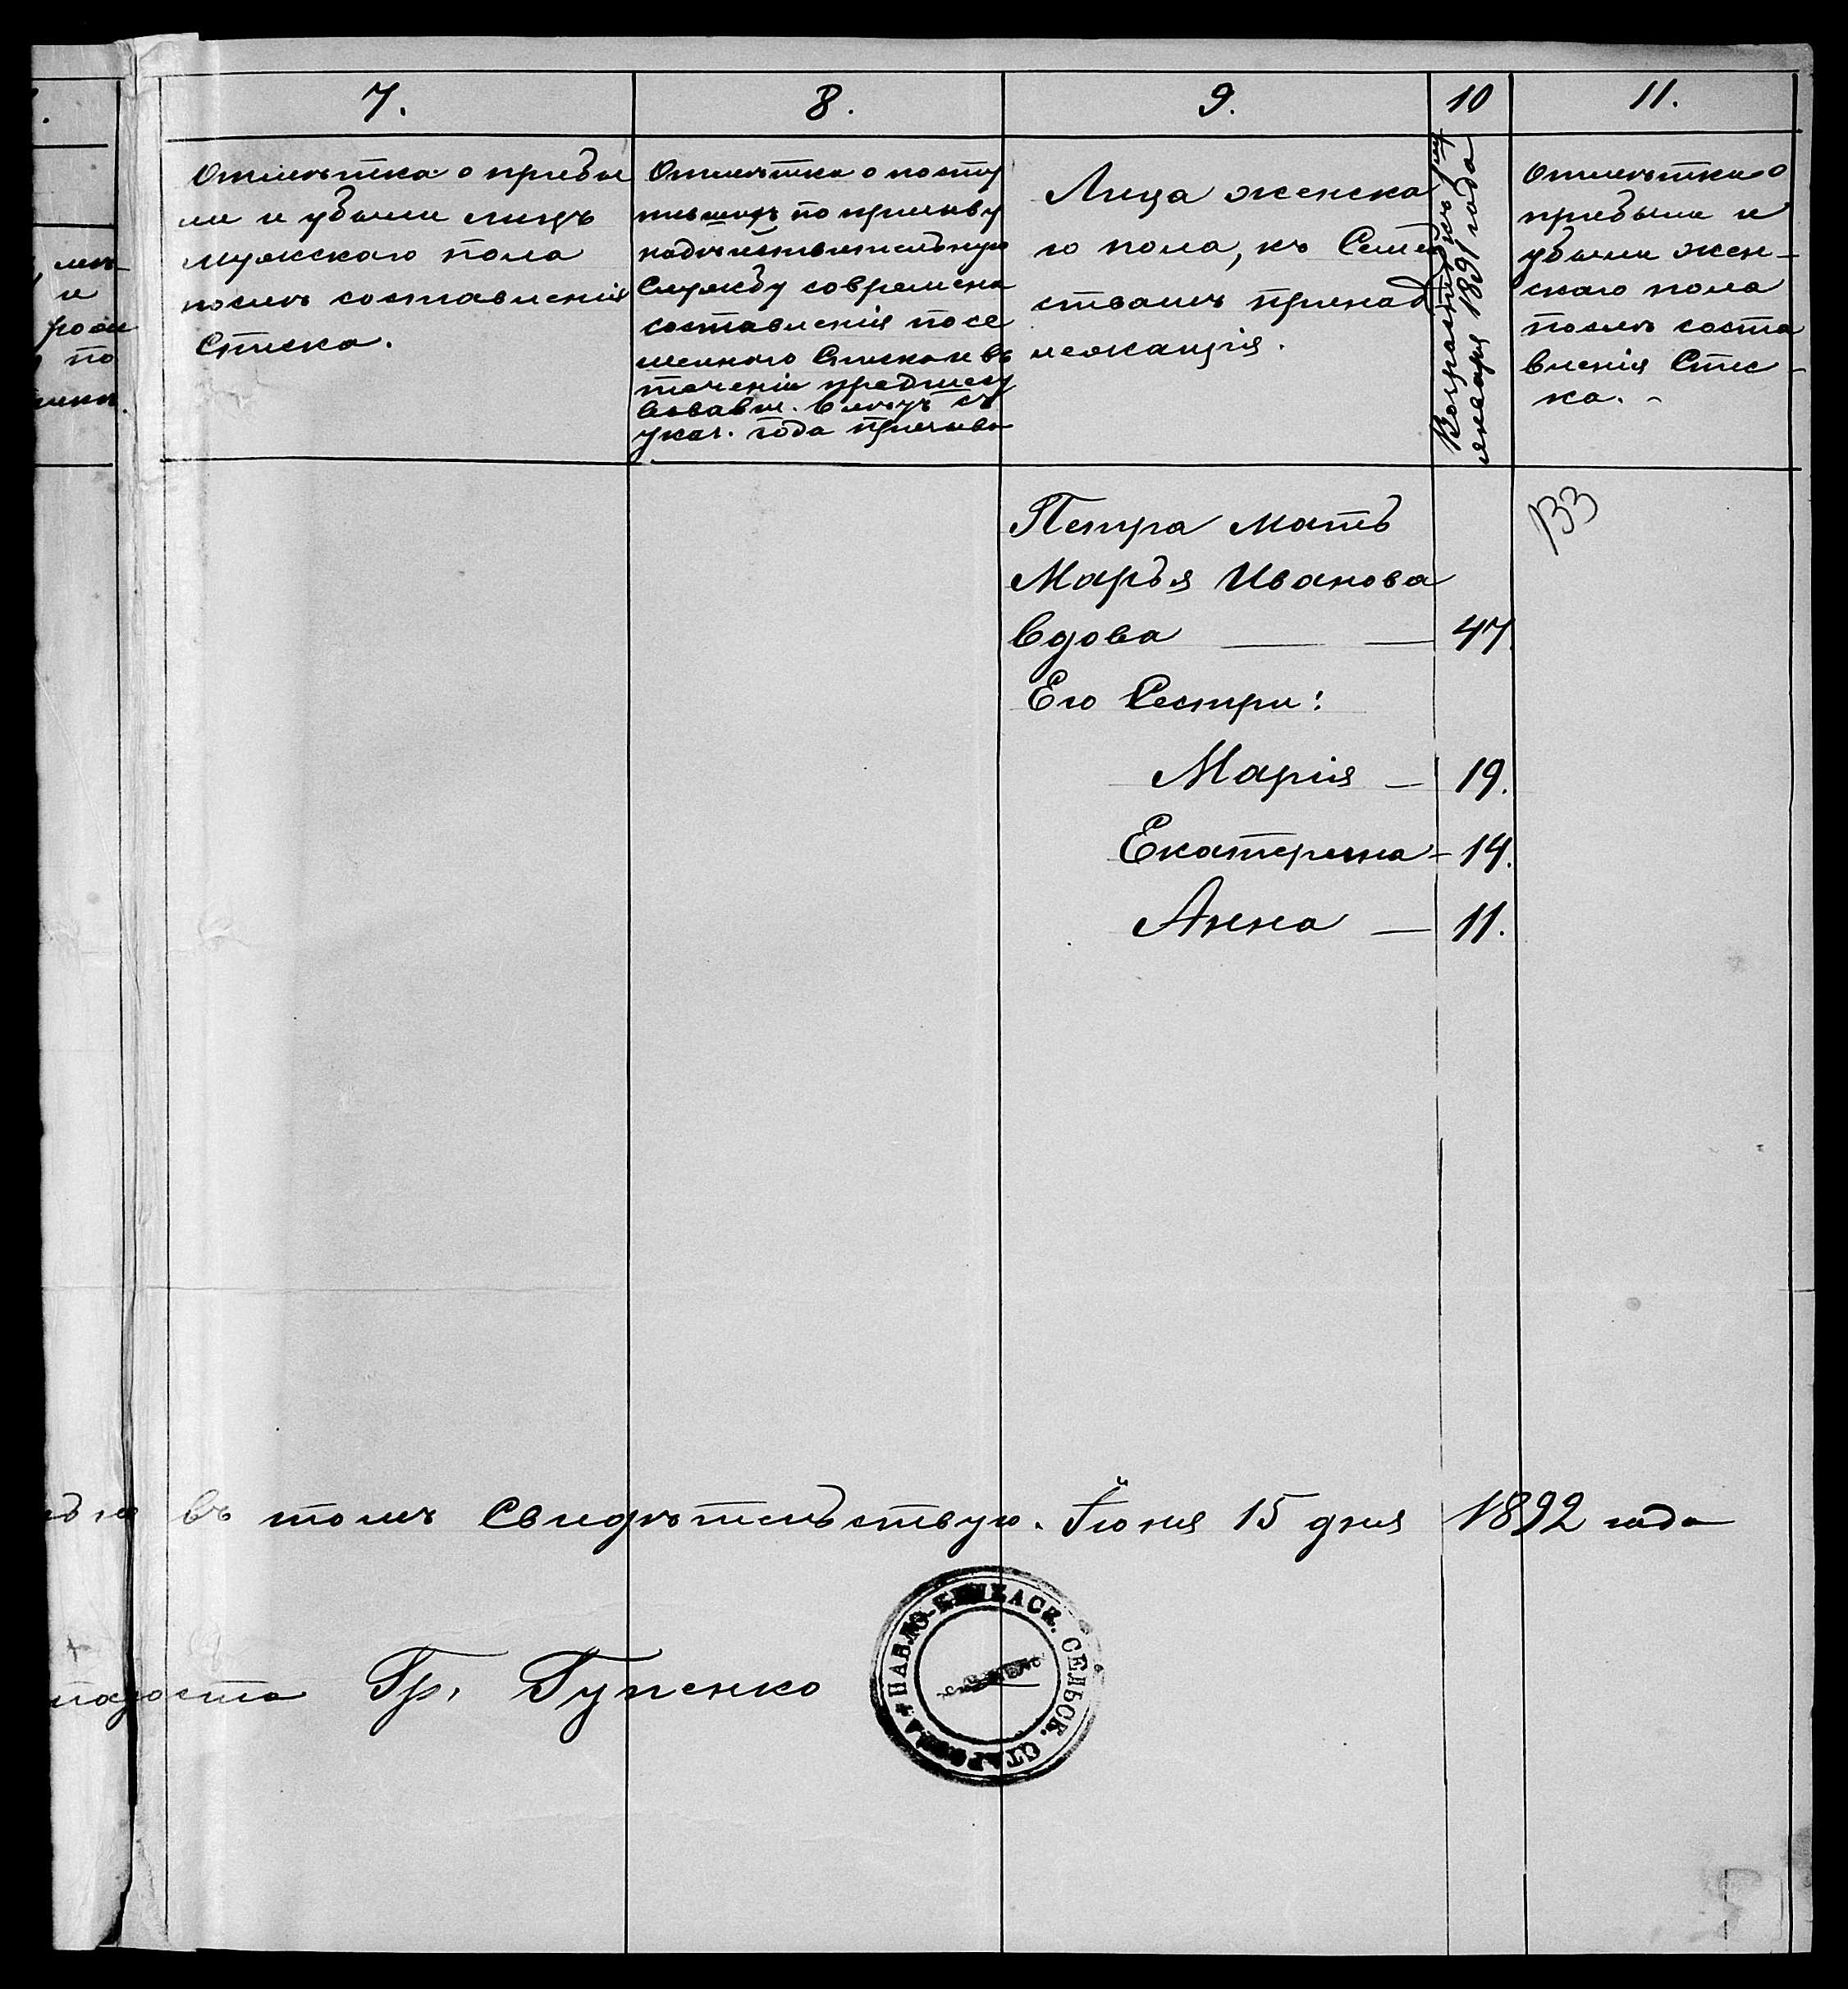 7.
Отмѣтка о прибы
ли и убыли лицъ
мужскаго пола
послѣ составленія
Списка.
8.
Отметка о посту
по призыву
надѣйствительную
Службу современа
составленія посе
мейнаго Списка и въ
теченіи предшест
вовавш.
указ. года призыва
9.
Лица женска
го пола, къ Семей
ствамъ принад
лежащія.
10
Возрастъ ихъ къ
января 1891 года
11.
Отмѣтка о
прибыли и
убыли жен-
скаго пола
послѣ соста
вленія Спис-
ка. -
133
Петра мать
Марья Иванова
Вдова — — 47
Его Сестри:
Марія — 19.
Екатерина - 14.
Анна — 11.
въ томъ Свидѣтельствую. Іюня 15 дня 1892 года
Гр. Гупенко
ПАВЛО- СЕЛЬСК. СТАРОСТА